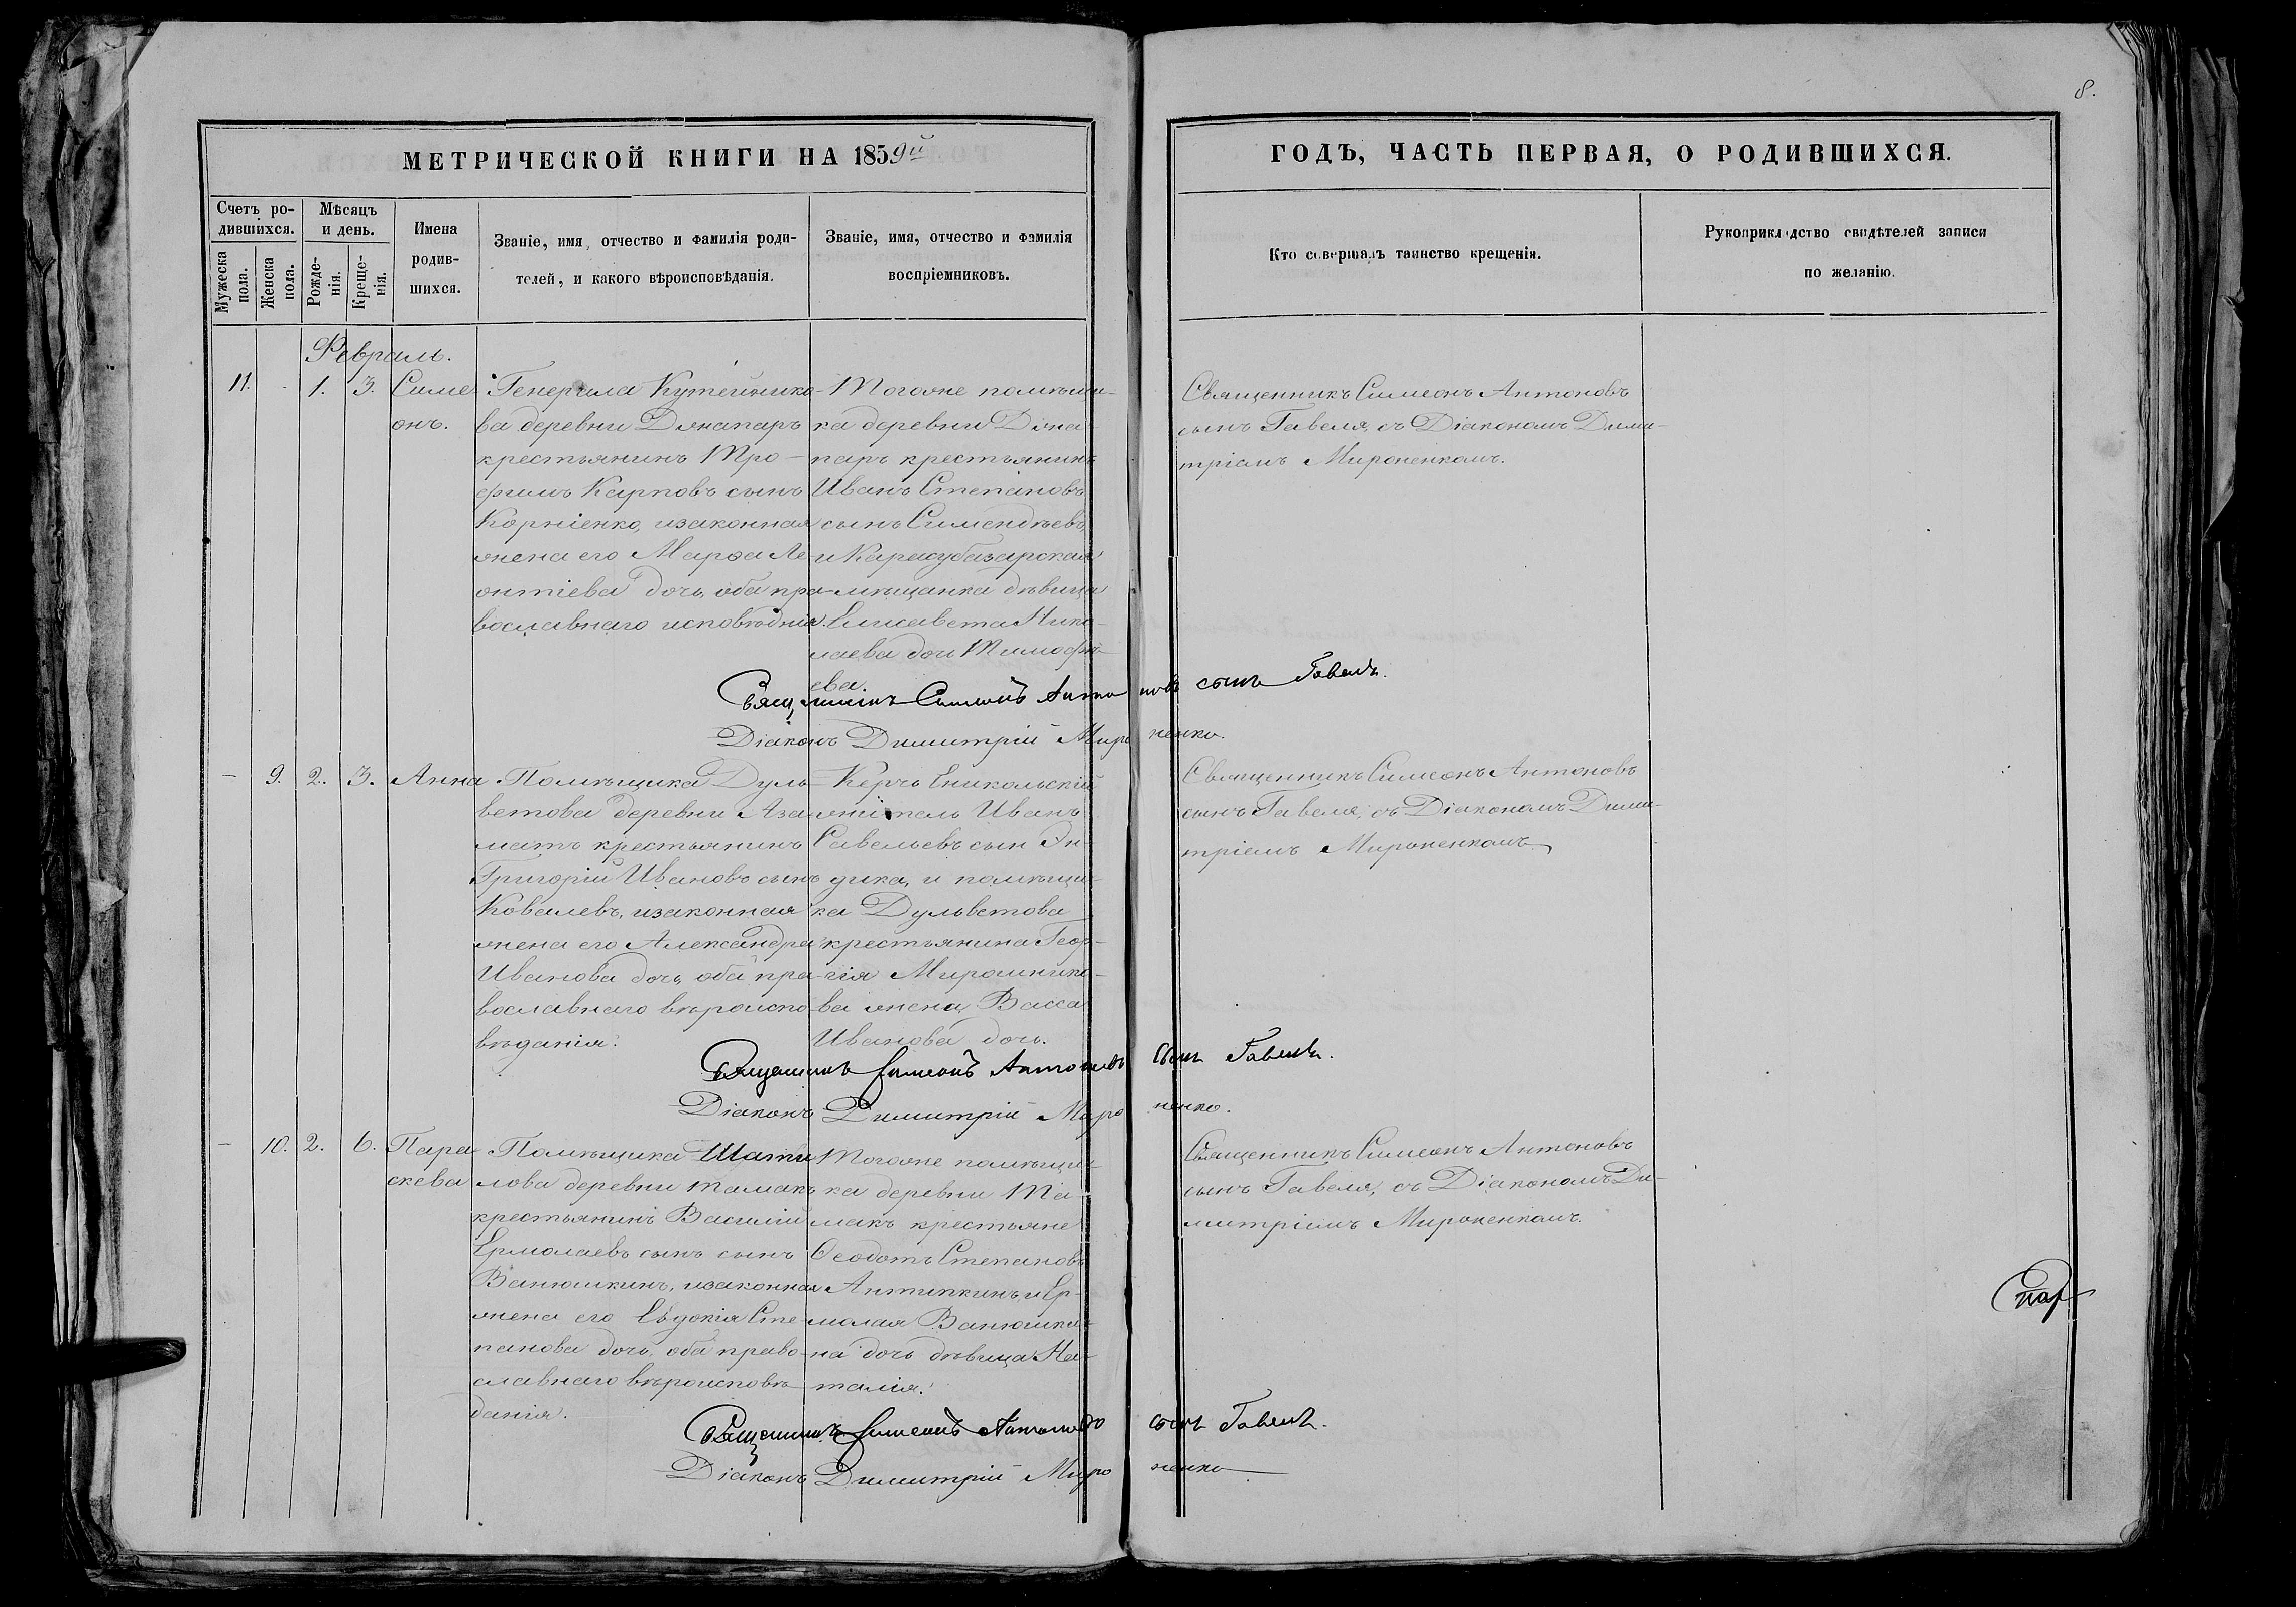 8.
МЕТРИЧЕСКОЙ КНИГИ НА 1859й
ГОДЪ, ЧАСТЬ ПЕРВАЯ, О РОДИВШИХСЯ.
Счетъ ро-
дившихся.
Мужеска
пола.
Женска
пола.
Мѣсяцъ
и день.
Рожде-
нія.
Креще-
нія.
Имена
родив-
шихся.
Званіе, имя, отчество и фамилія роди-
телей, и какого вѣроисповѣданія.
Званіе, имя, отчество и фамилія
воспріемниковъ.
Кто совершалъ таинство крещенія.
Рукоприкладство свидѣтелей записи
по желанію.
Февраль.
11.
1.
3.
Симе
онъ.
Генерала Кутейнико-
ва деревни Джапаръ
крестьянинъ Тро-
фимъ Карповъ сынъ
Корніенко, изаконная
жена его Марѳа Ле-
онтіева дочь, оба пра-
вославнаго исповѣднія.
Тогоже помѣщи-
ка деревни Джа-
паръ крестьянинъ
Иванъ Степановъ
сынъ
и Карасубазарская
мѣщанка дѣвица
Елисавета Нико-
лаева дочь Тимофѣ-
ева.
Священникъ Симеонъ Антоновъ
сынъ Гавеля, съ Діакономъ Дими-
тріемъ Мироненкомъ.
Священникъ Симеонъ Антоновъ сынъ Гавель.
Діаконъ Димитрій Мироненко.
—
9.
2.
3.
Анна
Помѣщика Дуль-
ветова деревни Аза-
матъ крестьянинъ
Григорій Ивановъ сынъ
Ковалевъ, изаконная
жена его Александра
Иванова дочь, оба пра-
вославнаго вѣроиспо-
вѣданія.
Керчь Еникольскій
житель Иванъ
Савельевъ сын Эн-
дика, и помѣщи-
ка Дульветова
крестьянина Геор-
гія Мирошнико-
ва жена Васса
Иванова дочь.
Священникъ Симеонъ Антоновъ
сынъ Гавеля, съ Діакономъ Дими-
тріемъ Мироненкомъ
Священникъ Симеонъ Антоновъ сынъ Гавель.
Діаконъ Димитрій Мироненко.
—
10.
2.
6.
Пара
скева
Помѣщика Шати
лова деревни Тамакъ
крестьянинъ Василій
Ермолаевъ сынъ сынъ
Ванюшкинъ, изаконная
жена его Евдокія Сте-
панова дочь, оба право-
славнаго вѣроисповѣ-
данія.
Тогоже помѣщи-
ка деревни Та-
макъ крестьяне
Ѳеодотъ Степановъ
Антипкинъ, и Ер-
молая Ванюшки-
на дочь дѣвица На-
талія.
Священникъ Симеонъ Антоновъ
сынъ Гавеля, съ Діакономъ Ди-
митріемъ Мироненкомъ.
Священникъ Симеонъ Антоновъ сынъ Гавель.
Діаконъ Димитрій Мироненко